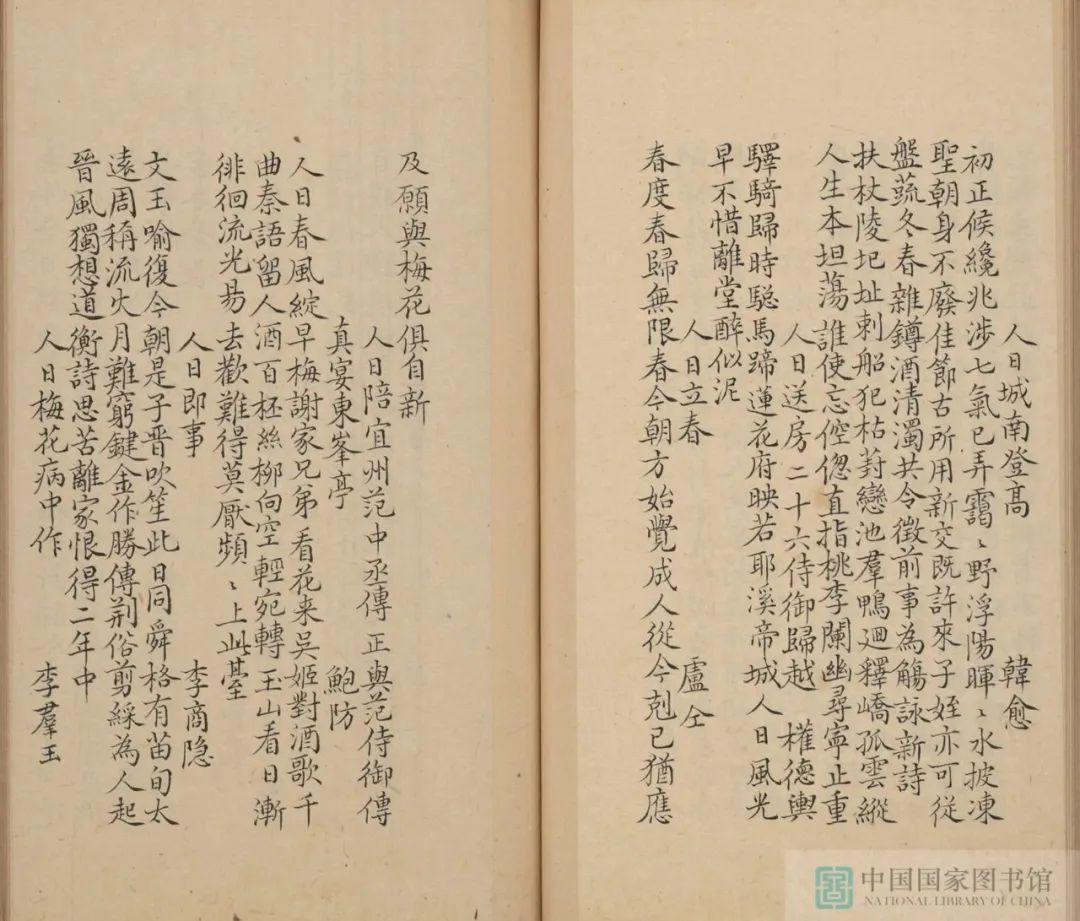 人日城南登高　韓愈
初正候纔兆涉七氣已弄靄〻野浮陽暉〻水披凍
聖朝身不廢佳節古所用新交既許來子姪亦可從
盤蔬冬春雜鐏酒清濁共令徵前事為觴詠新詩
扶杖陵圮址刺船犯枯葑戀池羣鴨廻釋嶠孤雲縱
人生本坦蕩誰使忘倥偬直指桃李闌幽尋寧止重
人日送房二十六侍御歸越　權德輿
驛騎歸時驄馬蹄蓮花府映若耶溪帝城人日風光
早不惜離堂醉似泥
人日立春　盧仝
春度春歸無限春今朝方始覺成人從今剋已猶應
及願與梅花俱自新
人日陪宜州范中丞傳正與范侍御傳
真宴東峯亭　鮑防
人日春風綻早梅謝家兄弟看花来吳姬對酒歌千
曲秦語留人酒百柸絲栁向空輕宛轉玉山看日漸
徘徊流光易去歡難得莫厭頻〻上此臺
人日即事　李商隐
文王喻復今朝是子晉吹笙此日同舜格有苗旬太
遠周稱流火月難窮鍵金作勝傳荆俗剪綵為人起
晉風獨想道衡詩思苦離家恨得二年中
人日梅花病中作　李羣玉
中国国家图书馆
NATIONAL LIBRARY OF CHINA